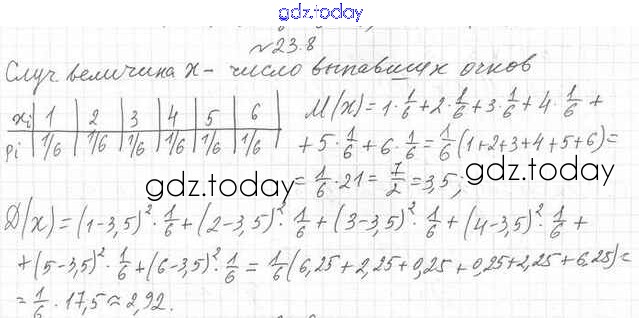 gdz.today
№23.8
Случ величина X - число выпавших очков
xi | 1 | 2 | 3 | 4 | 5 | 6
pi | 1/6 | 1/6 | 1/6 | 1/6 | 1/6 | 1/6
M(x) = 1·1/6 + 2·1/6 + 3·1/6 + 4·1/6 +
+ 5·1/6 + 6·1/6 = 1/6(1+2+3+4+5+6) =
= 1/6·21 = 7/2 = 3,5;
gdz.today
gdz.today
D(x) = (1-3,5)²·1/6 + (2-3,5)²·1/6 + (3-3,5)²·1/6 + (4-3,5)²·1/6 +
+ (5-3,5)²·1/6 + (6-3,5)²·1/6 = 1/6(6,25+2,25+0,25+0,25+2,25+6,25) =
= 1/6·17,5 ≈ 2,92.